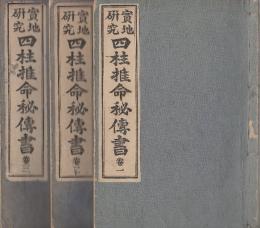 實地研究 四柱推命秘傳書 卷三
實地研究 四柱推命秘傳書 卷二
實地研究 四柱推命秘傳書 卷一